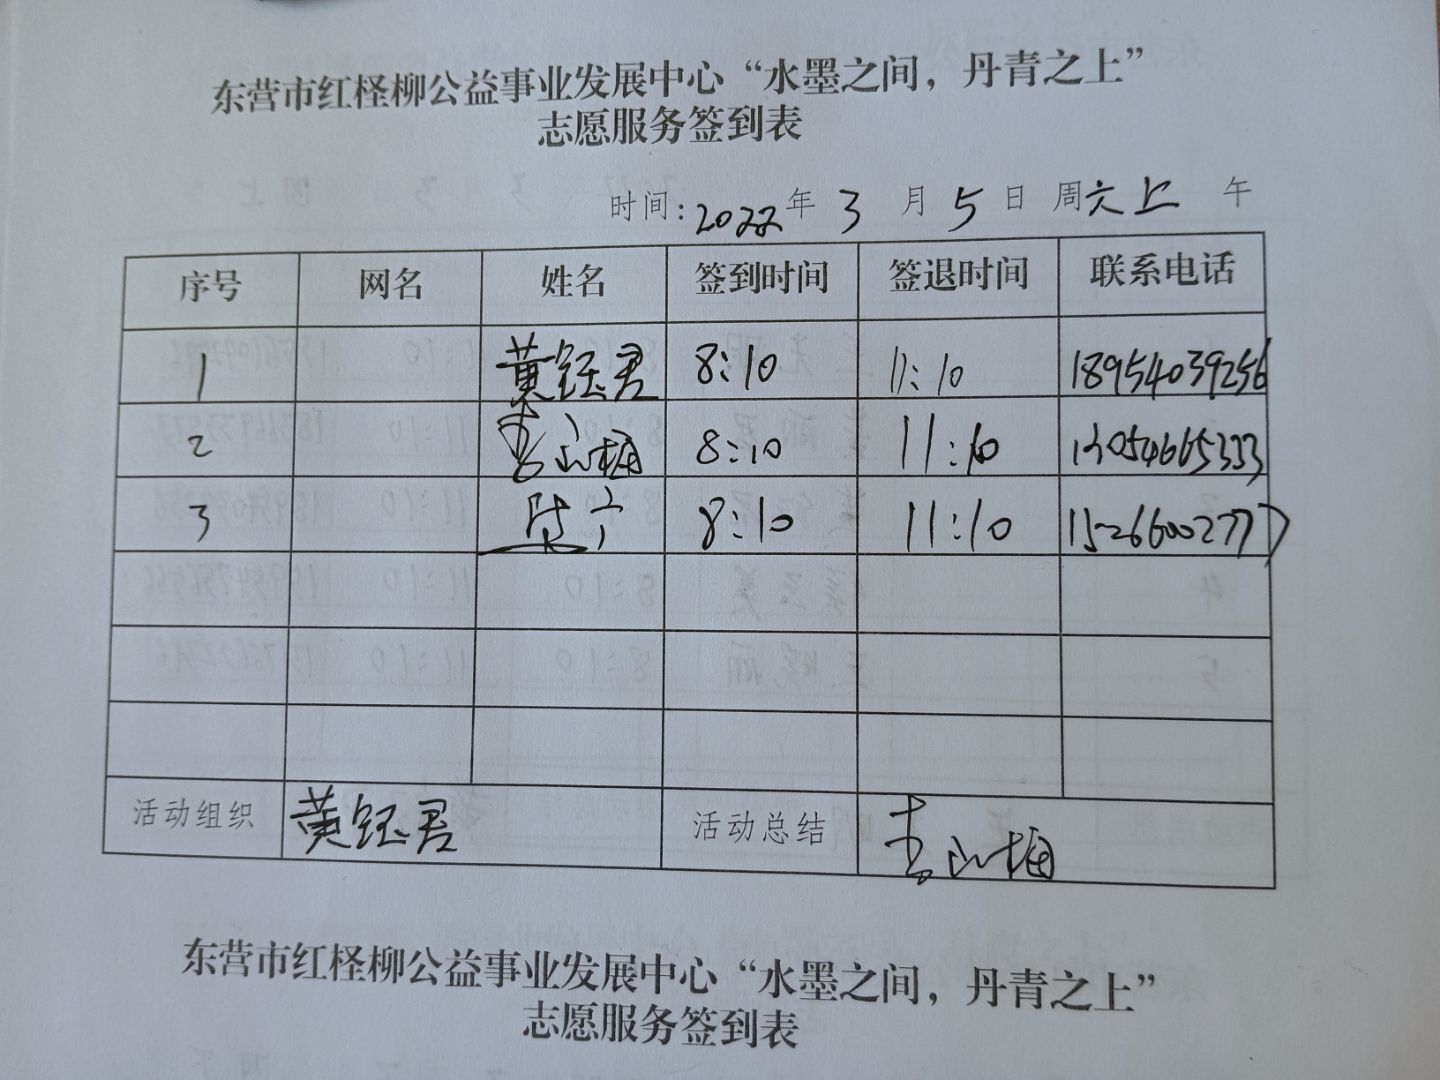 东营市红柽柳公益事业发展中心“水墨之间，丹青之上”
志愿服务签到表
时间：2022年3月5日 周六上午
序号 网名 姓名 签到时间 签退时间 联系电话
1 黄钰君 8:10 11:10 18954039256
2 8:10 11:10 13054665333
3 8:10 11:10 15266002777
活动组织 黄钰君 活动总结
东营市红柽柳公益事业发展中心“水墨之间，丹青之上”
志愿服务签到表